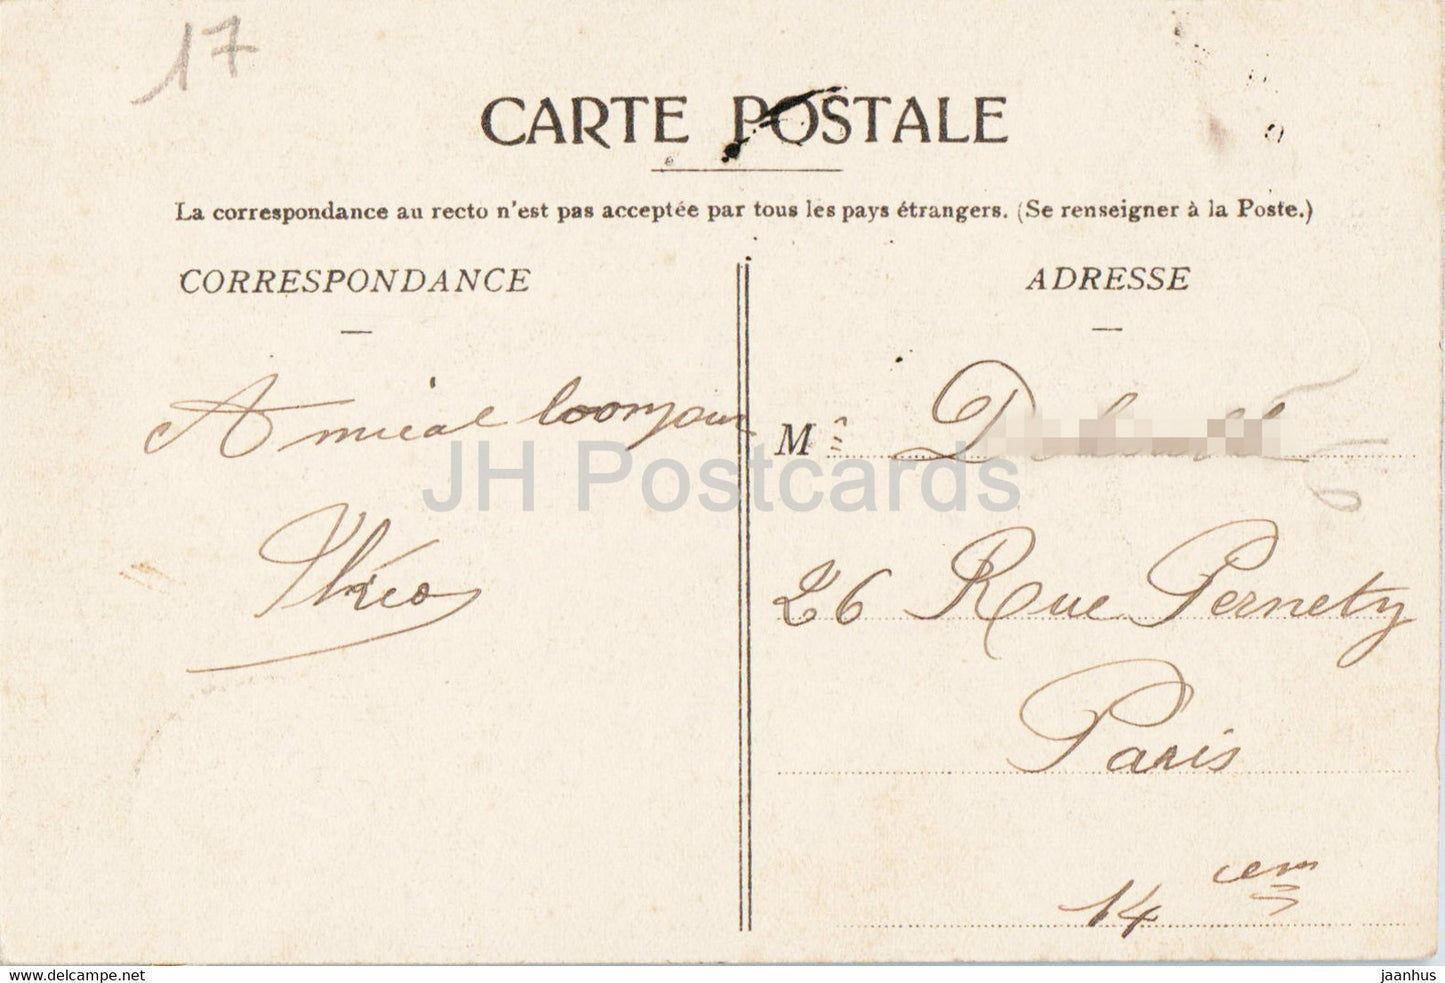 17
CARTE POSTALE
La correspondance au recto n'est pas acceptée par tous les pays étrangers. (Se renseigner à la Poste.)
CORRESPONDANCE
ADRESSE
Amical bonjour
Théo
M
26 Rue Pernety
Paris
14 em
JH Postcards
https://www.hippostcard.com/store/jaanhus
jaanhus